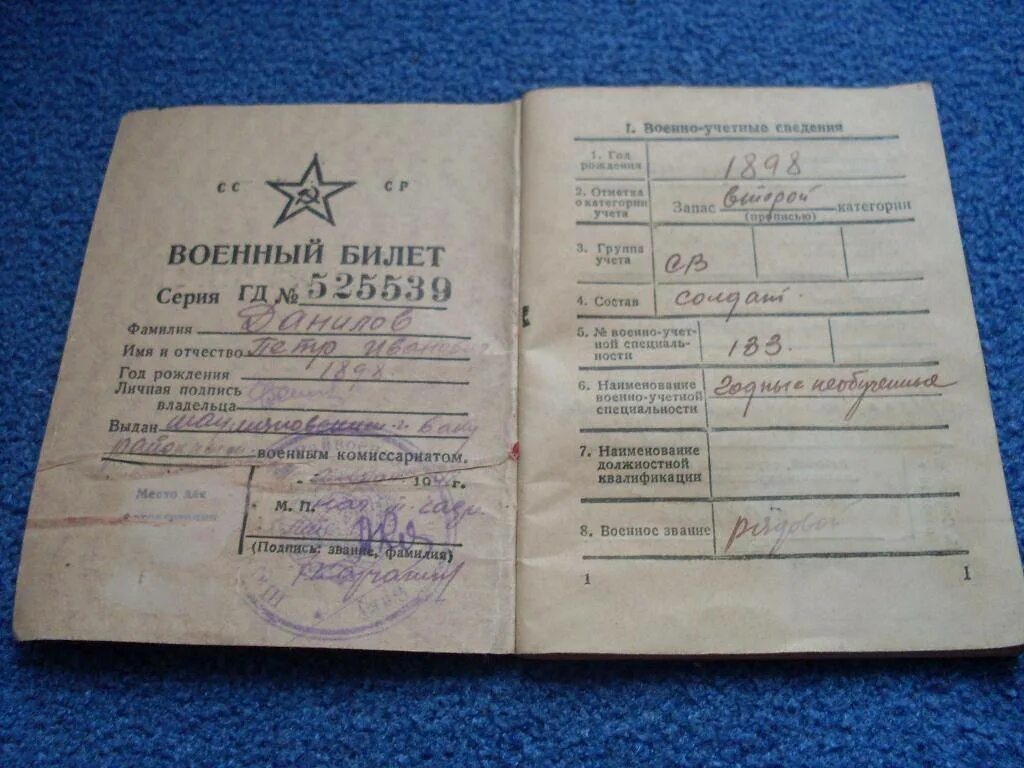 СС СР
ВОЕННЫЙ БИЛЕТ
Серия ГД № 525539
Фамилия Данилов
Имя и отчество Петр Иванович
Год рождения 1898
Личная подпись
владельца
Выдан г. Баку
районным военным комиссариатом.
194 г.
Место для
М. П.
(Подпись: звание, фамилия)
I. Военно-учетные сведения
1. Год
рождения
1898
2. Отметка
о категории
учета
Запас второй категории
(прописью)
3. Группа
учета
СВ
4. Состав
солдат.
5. № военно-учет-
ной специаль-
ности
133.
6. Наименование
военно-учетной
специальности
годные необученные
7. Наименование
должностной
квалификации
8. Военное звание
рядовой
1
1